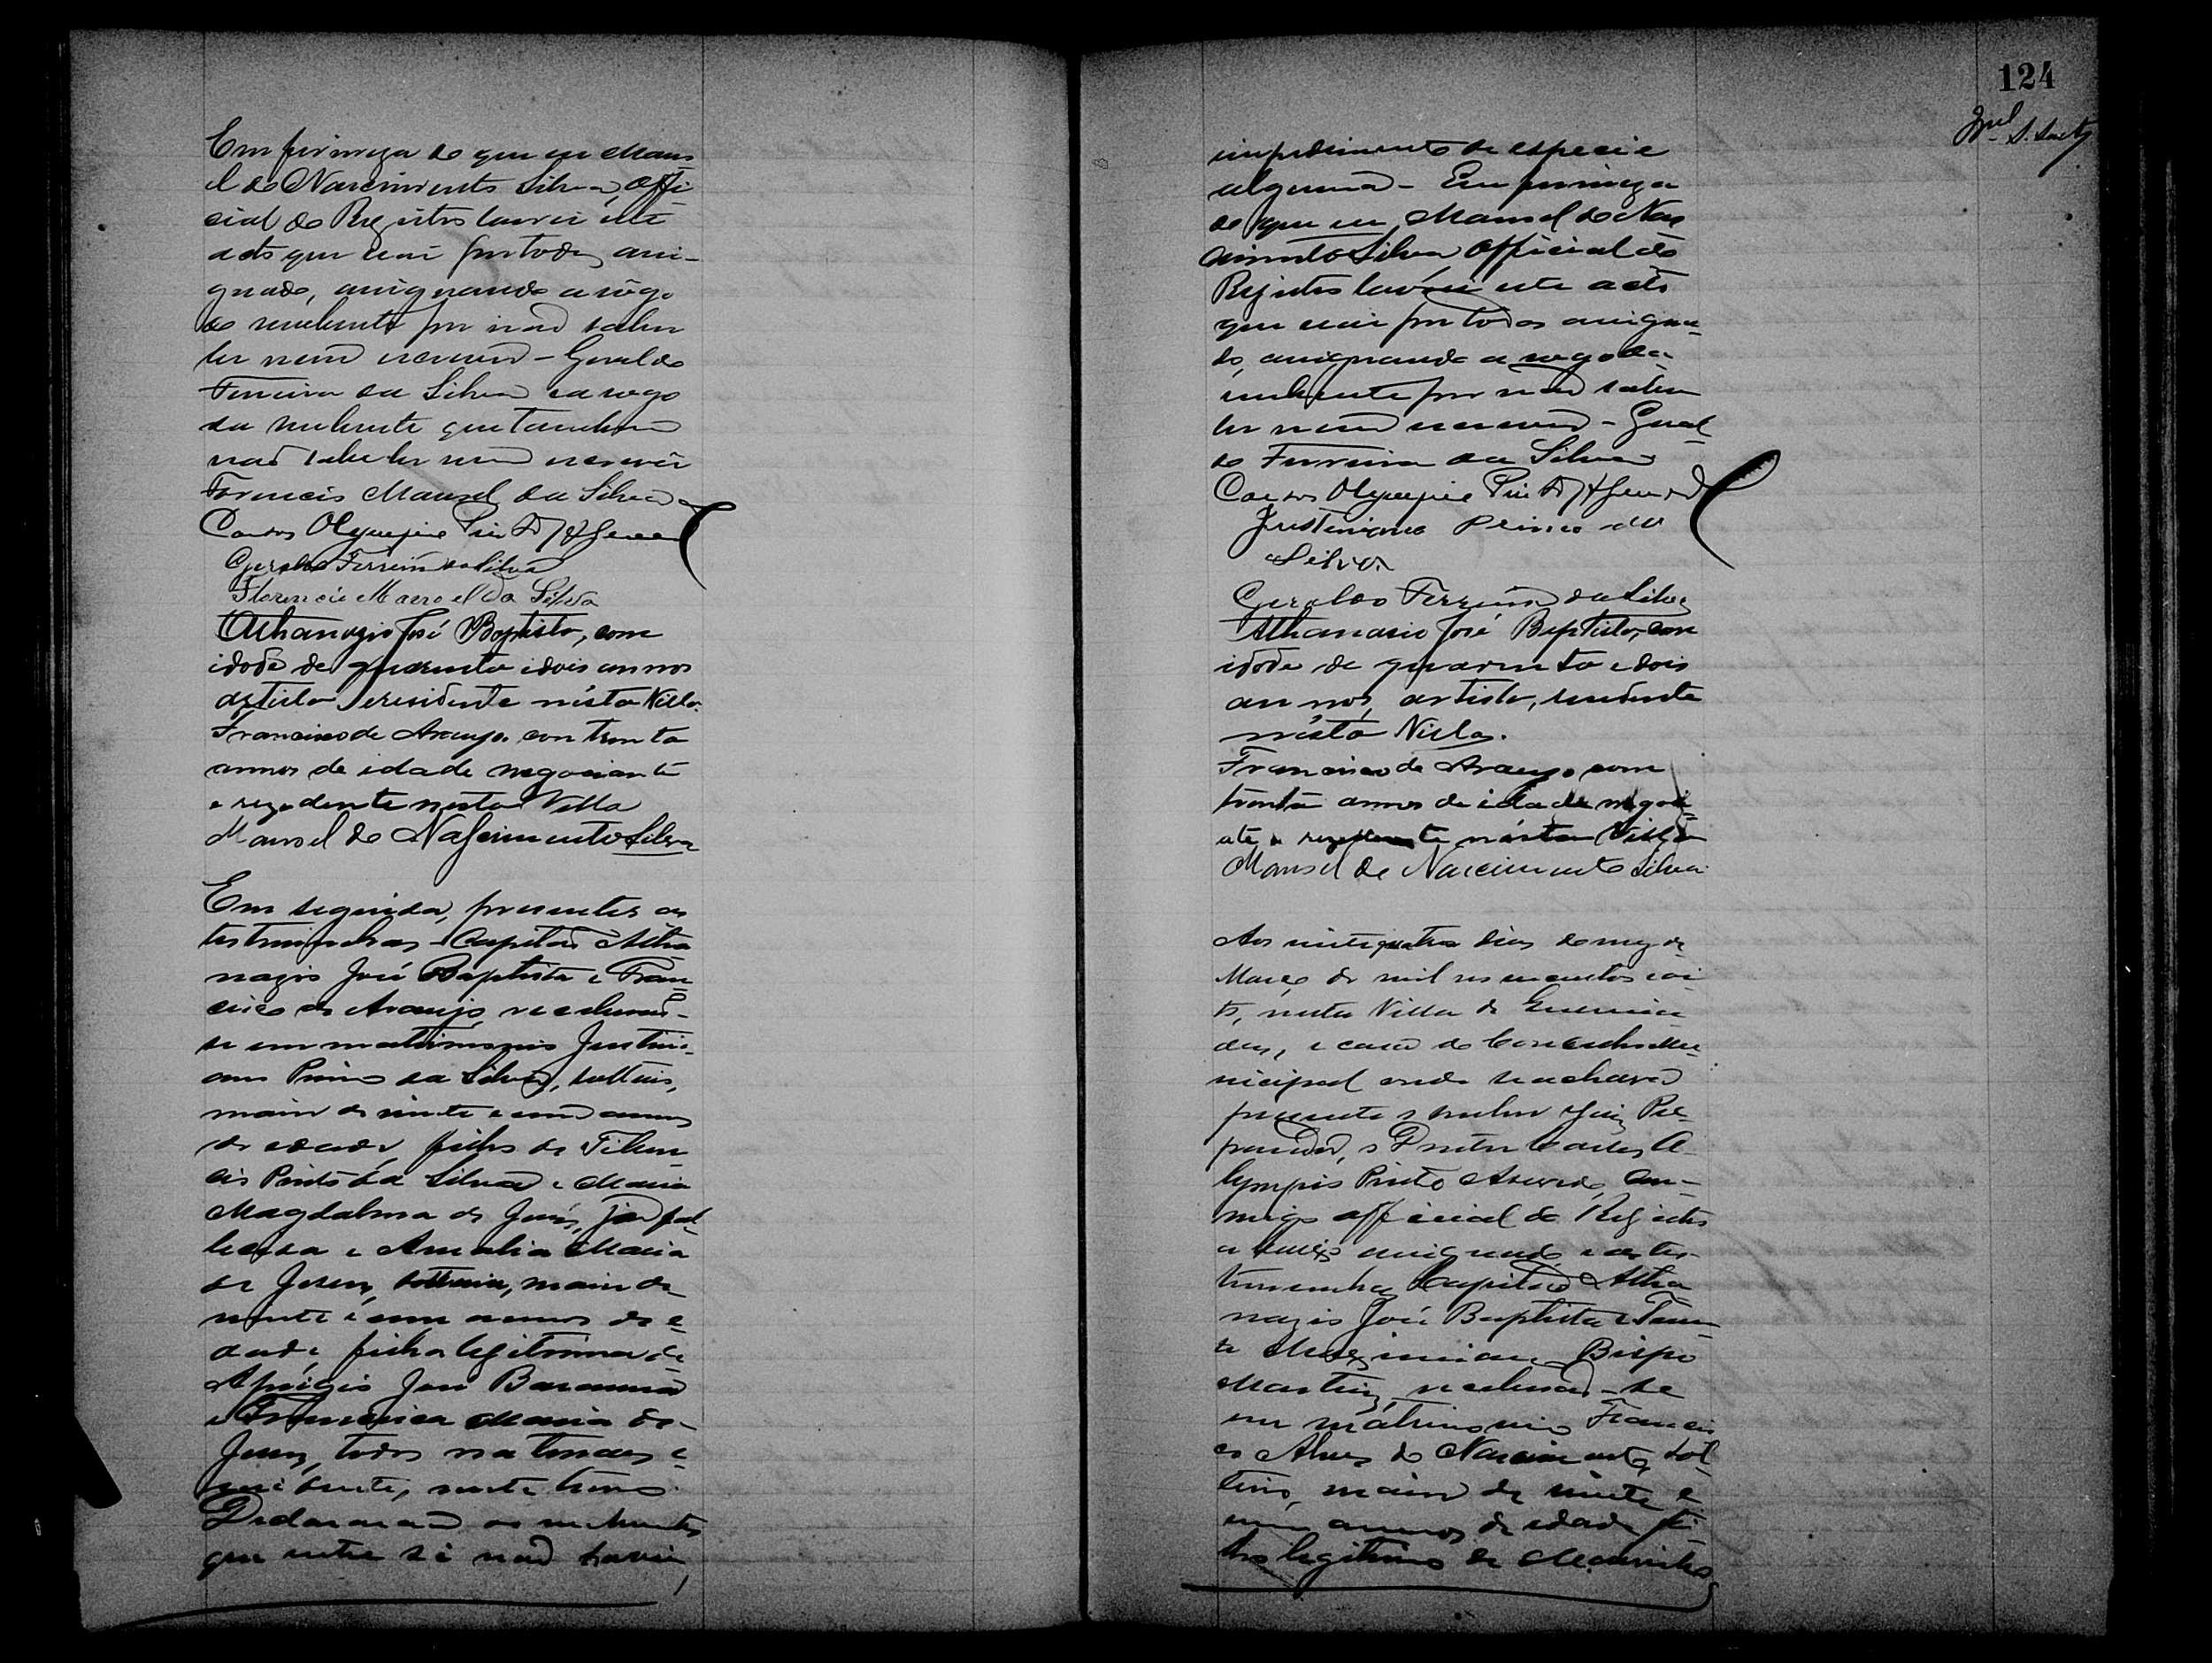 Em firmeza do que eu Mano
el do Nascimento Silva, Offi-
cial do Registro lavrei este
acto que vai por todos assi-
gnado, assignando a rôgo
do nubente por não saber
ler nem escrever - Geraldo
Ferreira da Silva e a rogo
da nubente que tambem
não sabe ler nem escrever
Florencio Manoel da Silva
Carlos Olympio Pinto d'Azevedo
Geraldo Ferreira da Silva
Florencio Manoel da Silva
Athanazio José Baptista, com
idade de quarenta e dois annos
artista e residente nésta Villa.
Francisco de Araujo com trinta
annos de idade negociante
e rezedente nesta Villa
Manoel do Nascimento Silva
Em seguida, presentes as
testiminhas - Capitão Atha
nazio José Baptista e Fran-
cisco de Araujo, receberão-
se em matrimonio Justini-
ano Primo da Silva, solteiro,
maior de vinte e um annos
de edade, filho de
Pinto da Silva e Maria
Magdalena de Jesús, já fal-
lecida e Amalia Maria
de Jesus, solteira, maior de
vinte e um annos de e-
dade, filha legitima de
Aprigio José Barauna
e Francisca Maria de
Jesus, todos naturaes e
residente, neste termo.
Declararão os nubentes
que entre si não havia,
124
impedimento de especie
alguma - Em firmeza
do que eu Manoel do Nas
cimento Silva Official do
Registro lavrei este acto
que vai por todos assigna-
do, assignando a rogo da
nubente por não saber
ler nem escrever - Geral-
do Ferreira da Silva
Carlos Olympio Pinto d'Azevedo
Justiniano Primo da
Silva
Geraldo Ferreira da Silva
Athanasio José Baptista, com
idade de quarenta e dois
annos, artista, residente
nésta Villa.
Francisco de Araujo com
trinta annos de idade negoci
ate e rezedente nésta Villa
Manoel do Nascimento Silva
Aos vinte quatro dias do mez de
Março de mil novecentos e oi-
to, nesta Villa de
e casa do Conselho Mu-
nicipal onde se achava
presente o senhor Juiz Pre-
parador, o Doutor Carlos O-
lympio Pinto Azevedo, com-
migo official do Registro
a baixo assignado e as tes-
timunhas Capitão Atha
nazio José Baptista e Tenen-
te Maximiano Bispo
Martins, receberão-se
em matrimonio Francis
co Alves do Nascimento, sol-
teiro, maior de vinte e
um annos de edade, fi-
lho legitimo de